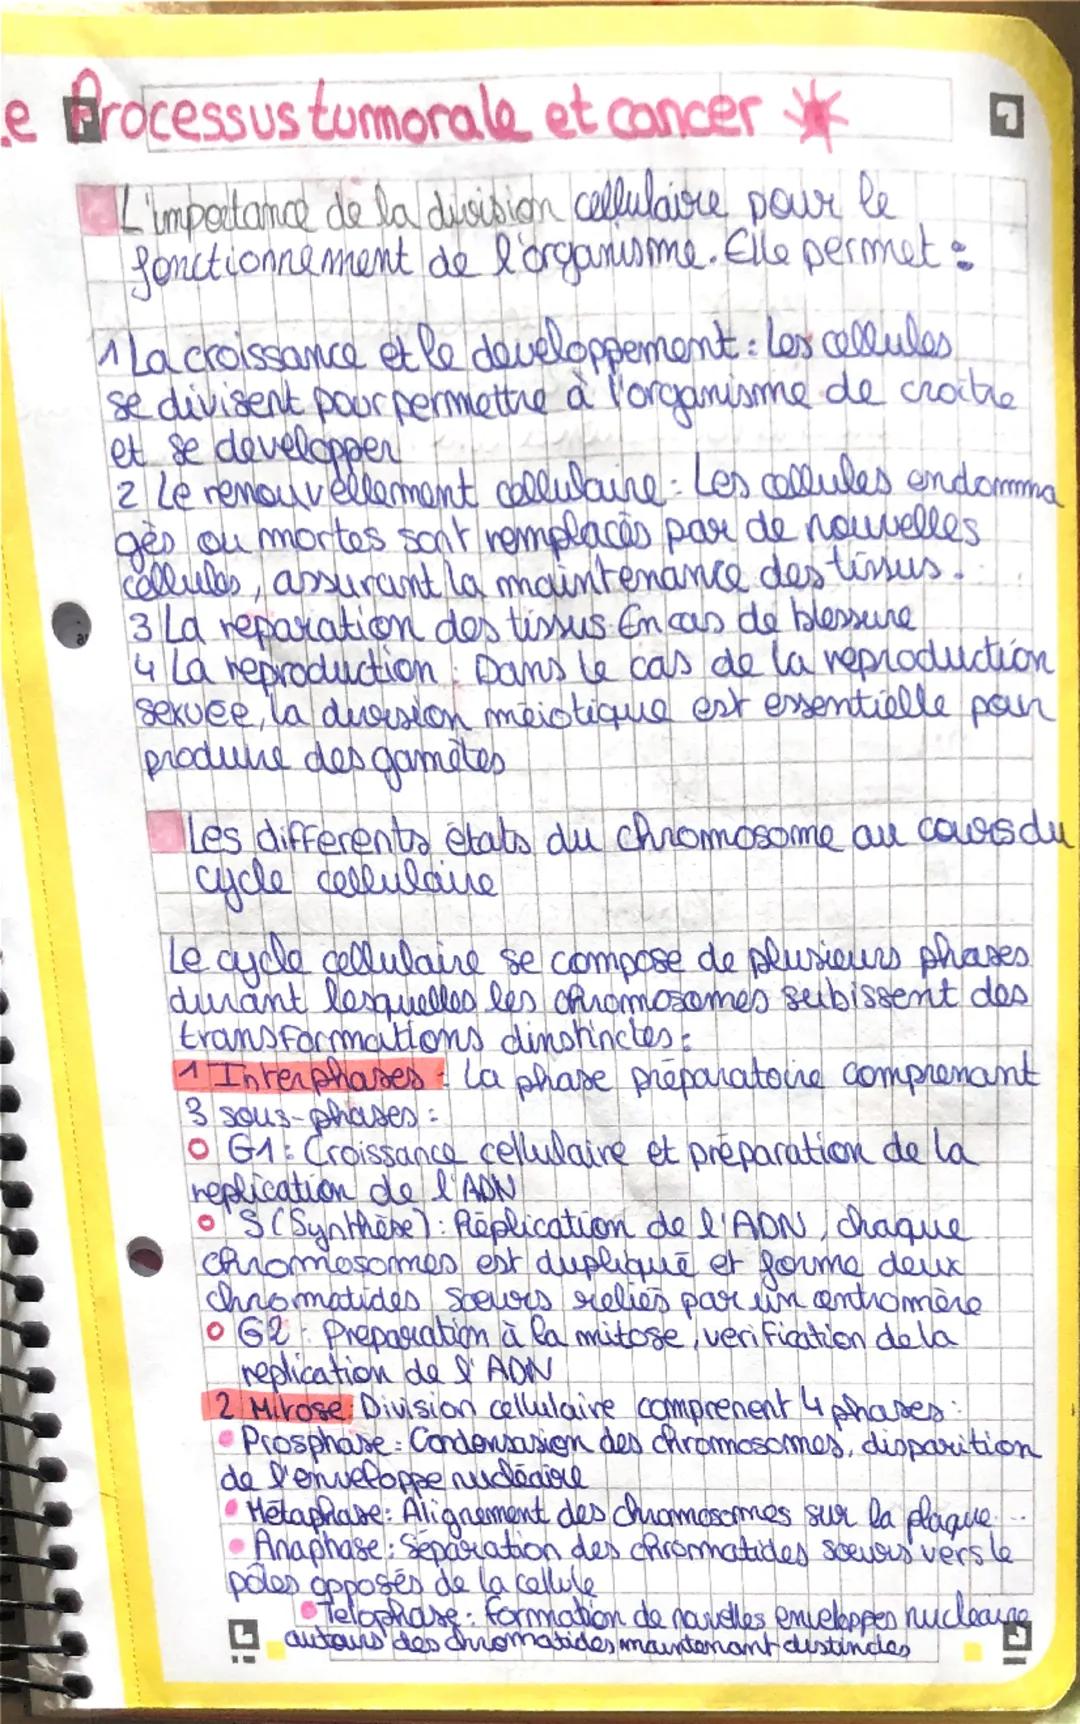 .e Processus tumorale et cancer
L'importance de la division cellulaire pour le
fonctionnement de l'organisme. Elle permet :
1 La croissance et le developpement : Les cellules
se divisent pour permettre à l'organisme de croitre
et se developper
2 Le renouvellement cellulaire : Les cellules endomma
gés ou mortes sont remplacés par de nouvelles
cellules, assurant la maintenance des tissus.
3 La reparation des tissus En cas de blessure
4 La reproduction : Dans le cas de la reproduction
sexuee, la division méiotique est essentielle pour
produire des gamètes
Les differents états du chromosome au cours du
cycle cellulaire
Le cycle cellulaire se compose de plusieurs phases
durant lesquelles les chromosomes subissent des
transformations dinstinctes :
1 Interphases : La phase préparatoire comprenant
3 sous-phases :
G1 : Croissance cellulaire et préparation de la
replication de l'ADN
S (Synthèse) : Réplication de l'ADN, chaque
chromosomes est dupliqué et forme deux
chromatides soeurs reliés par un centromère
G2 : Préparation à la mitose, verification de la
replication de l'ADN
2 Mitose : Division cellulaire comprenent 4 phases :
Prosphase : Condensasion des chromosomes, disparition
de l'enveloppe nucléaire
Métaphase : Alignement des chromosomes sur la plaque...
Anaphase : Séparation des chromatides soeurs vers le
pôles opposés de la cellule
Telophase : formation de nouvelles enveloppes nucleaire
autours des chromatides maintenant distinctes